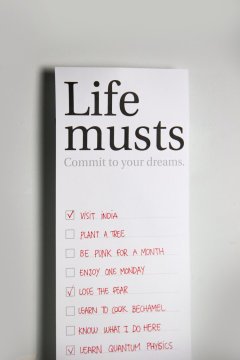 Life
musts
Commit to your dreams.
VISIT INDIA
PLANT A TREE
BE PUNK FOR A MONTH
ENJOY ONE MONDAY
LOSE THE FEAR
LEARN TO COOK BECHAMEL
KNOW WHAT I DO HERE
LEARN QUANTUM PHYSICS